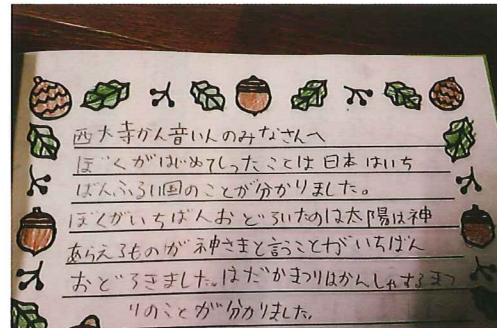 西大寺かん音いんのみなさんへ
ぼくがはじめてしったことは日本はいち
ばんふるい国のことが分かりました。
ぼくがいちばんおどろいたのは太陽は神
あらえるものが神さまと言うことがいちばん
おどろきました。はだかまつりはかんしゃするまつ
りのことが分かりました。